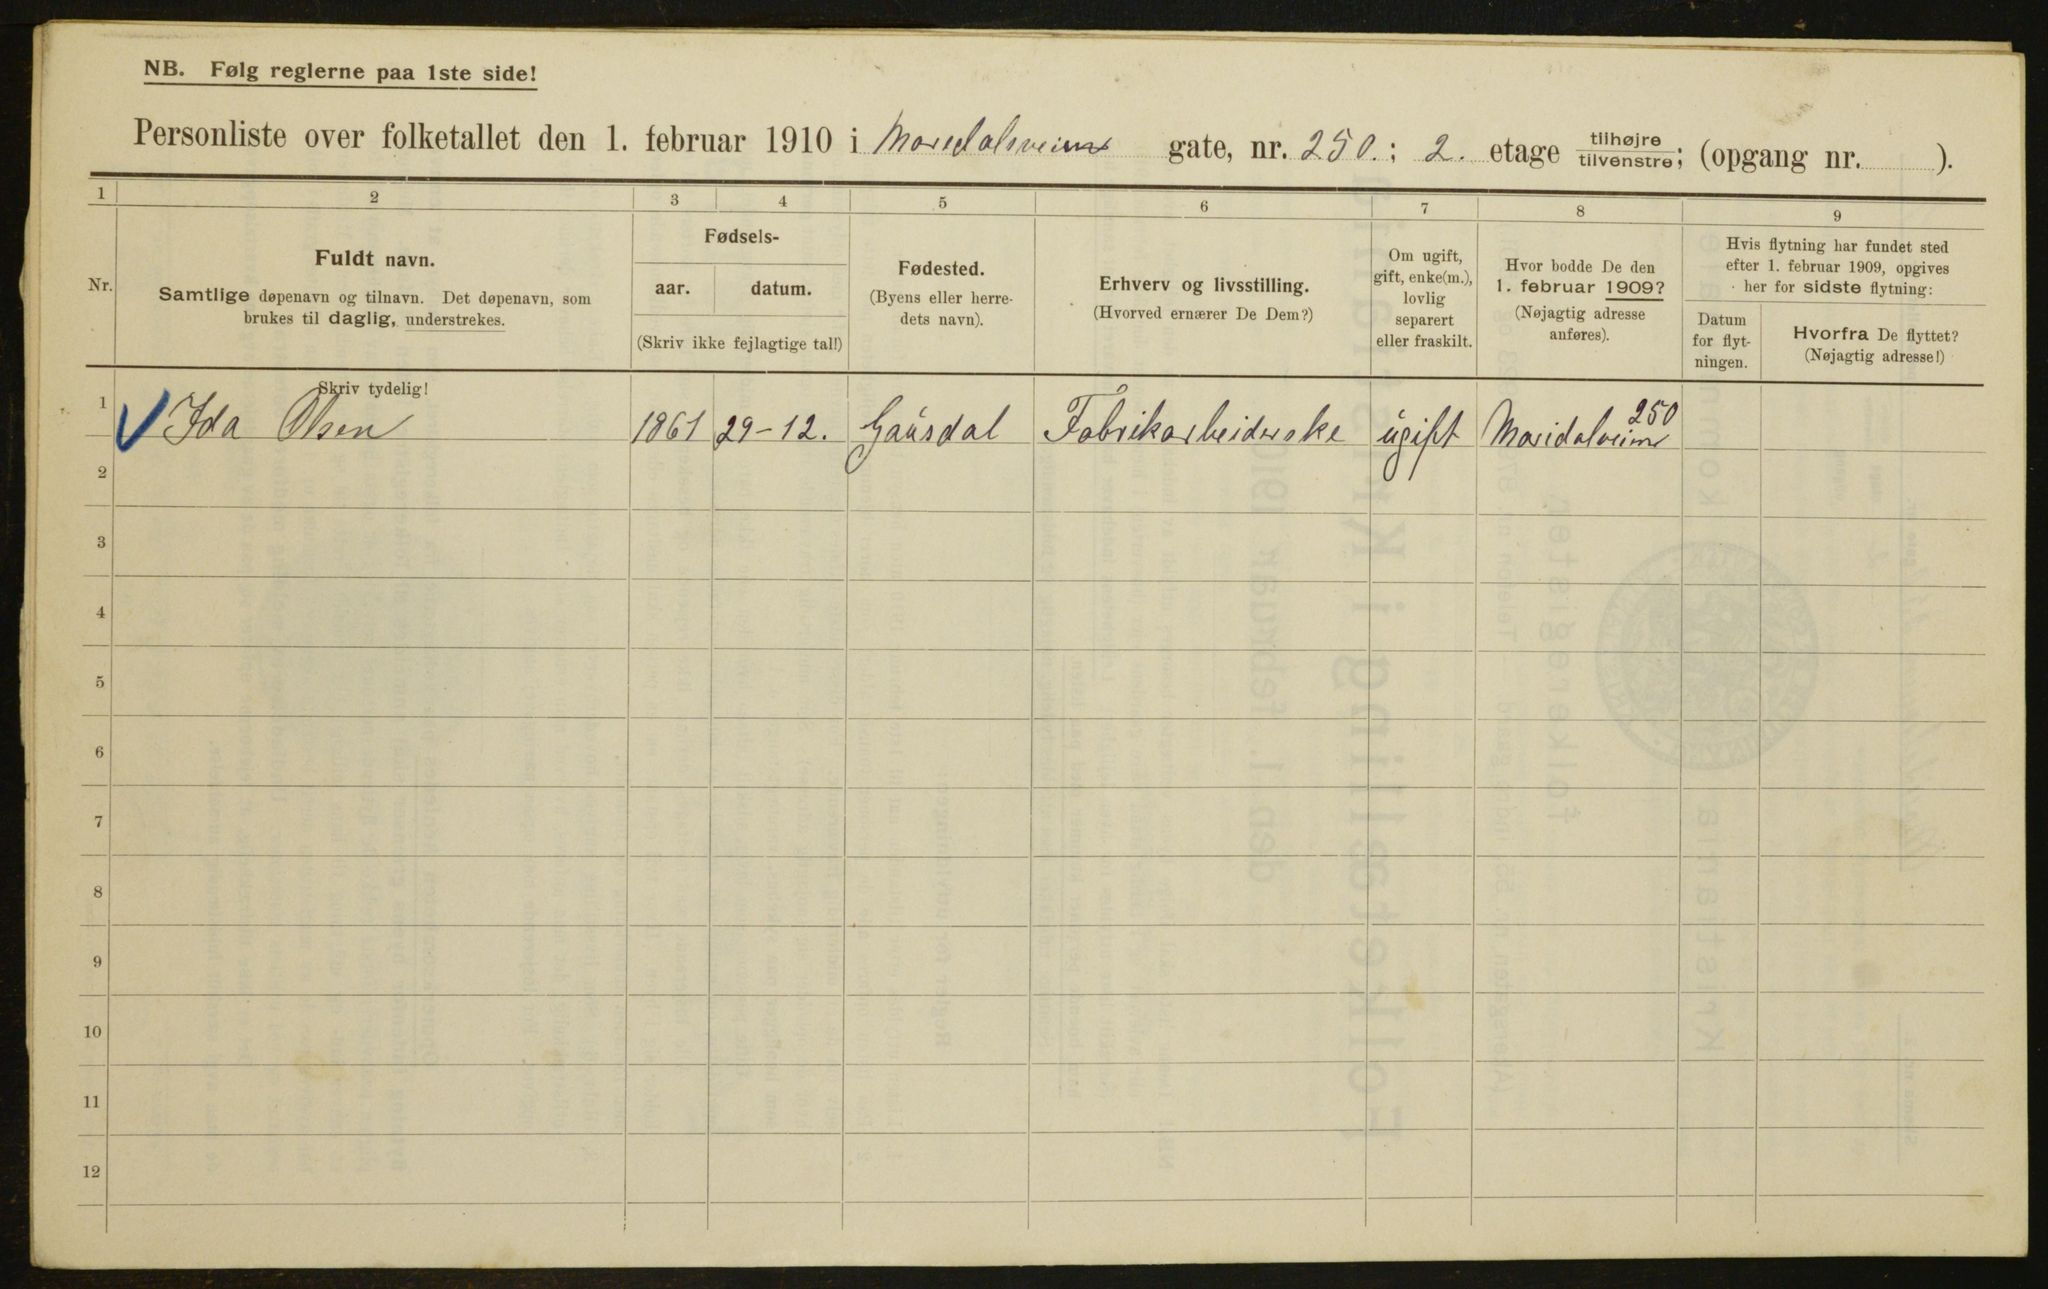 NB. Følg reglerne paa 1ste side!
Personliste over folketallet den 1. februar 1910 i Maridalsveien gate, nr. 250.; 2. etage tilhøjre tilvenstre; (opgang nr. ).
1 2 3 4 5 6 7 8 9
Nr.
Fuldt navn.
Samtlige døpenavn og tilnavn. Det døpenavn, som
brukes til daglig, understrekes.
Fødsels-
aar. datum.
(Skriv ikke fejlagtige tal!)
Fødested.
(Byens eller herre-
dets navn).
Erhverv og livsstilling.
(Hvorved ernærer De Dem?)
Om ugift,
gift, enke(m.),
lovlig
separert
eller fraskilt.
Hvor bodde De den
1. februar 1909?
(Nøjagtig adresse
anføres).
Hvis flytning har fundet sted
efter 1. februar 1909, opgives
her for sidste flytning:
Datum
for flyt-
ningen.
Hvorfra De flyttet?
(Nøjagtig adresse!)
Skriv tydelig!
1 Ida Olsen 1861 29-12. Gausdal Fabrikarbeiderske ugift Maridalveien 250
2
3
4
5
6
7
8
9
10
11
12